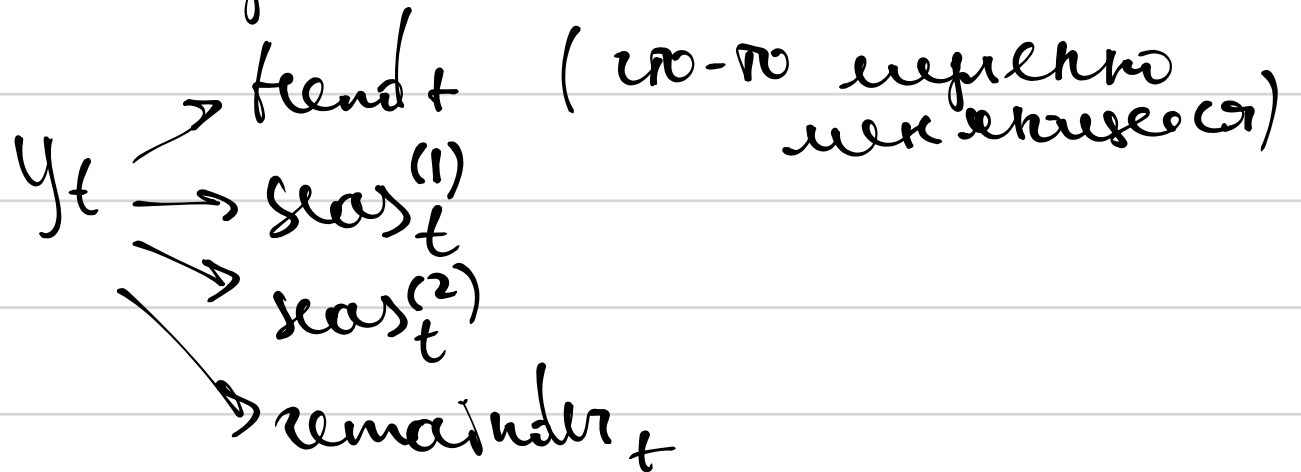 trend_t (что-то медленно
меняющееся)
y_t
seas_t^(1)
seas_t^(2)
remainder_t